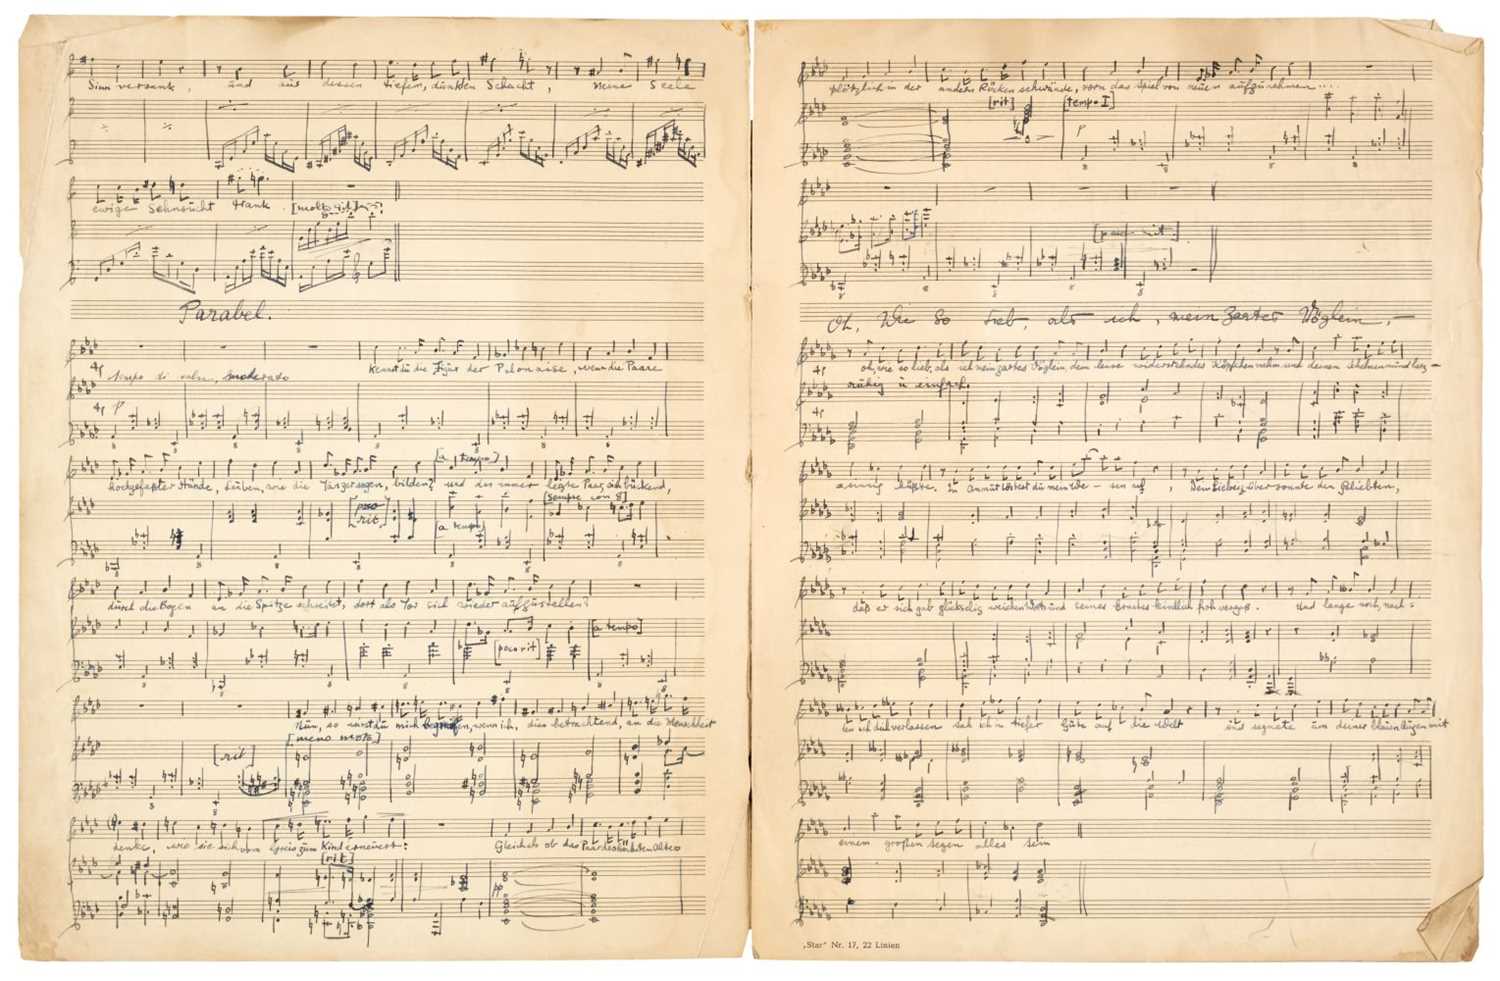 Sinn versank, und aus dessen tiefem, dunklen Schacht, meine Seele
ewige Sehnsucht trank. [molto rit]
Parabel.
Tempo di valse, moderato
Kennst du die Figur der Polonaise, wenn die Paare
p
[a tempo]
hochgefaßter Hände, Lauben, wie die Tänzer sagen, bilden? und das immer letzte Paar, sich bückend,
[poco rit.] [a tempo] [sempre con 8]
durch die Bogen an die Spitze schreitet, dort als Tor sich wieder aufzustellen?
[poco rit] [a tempo]
Nun, so wirst du mich begreifen, wenn ich, dies betrachtend, an die Menschheit
[rit] [meno mosso]
denke, wie sie sich vom Greis zum Kind erneuert: Gleich als ob das Paar des
[rit]
pp
plötzlich in der andern Rücken schwände, vorn das Spiel von neuem aufzunehmen....
[rit] [tempo I]
p
Oh, wie so lieb, als ich, mein zartes Vöglein, –
oh, wie so lieb, als ich mein zartes Vöglein, dein
ruhig u einfach.
küßte. In Anmut
, Dem Liebe übersonnte den Geliebten,
daß er sich gab glückselig und seines kindlich froh vergaß. Und lange noch, nach-
dem ich dich verlassen sah ich in tiefer Güte auf die Welt und segnete um deiner blauen Augen mit
einem großen Segen alles Sein
„Star" Nr. 17, 22 Linien